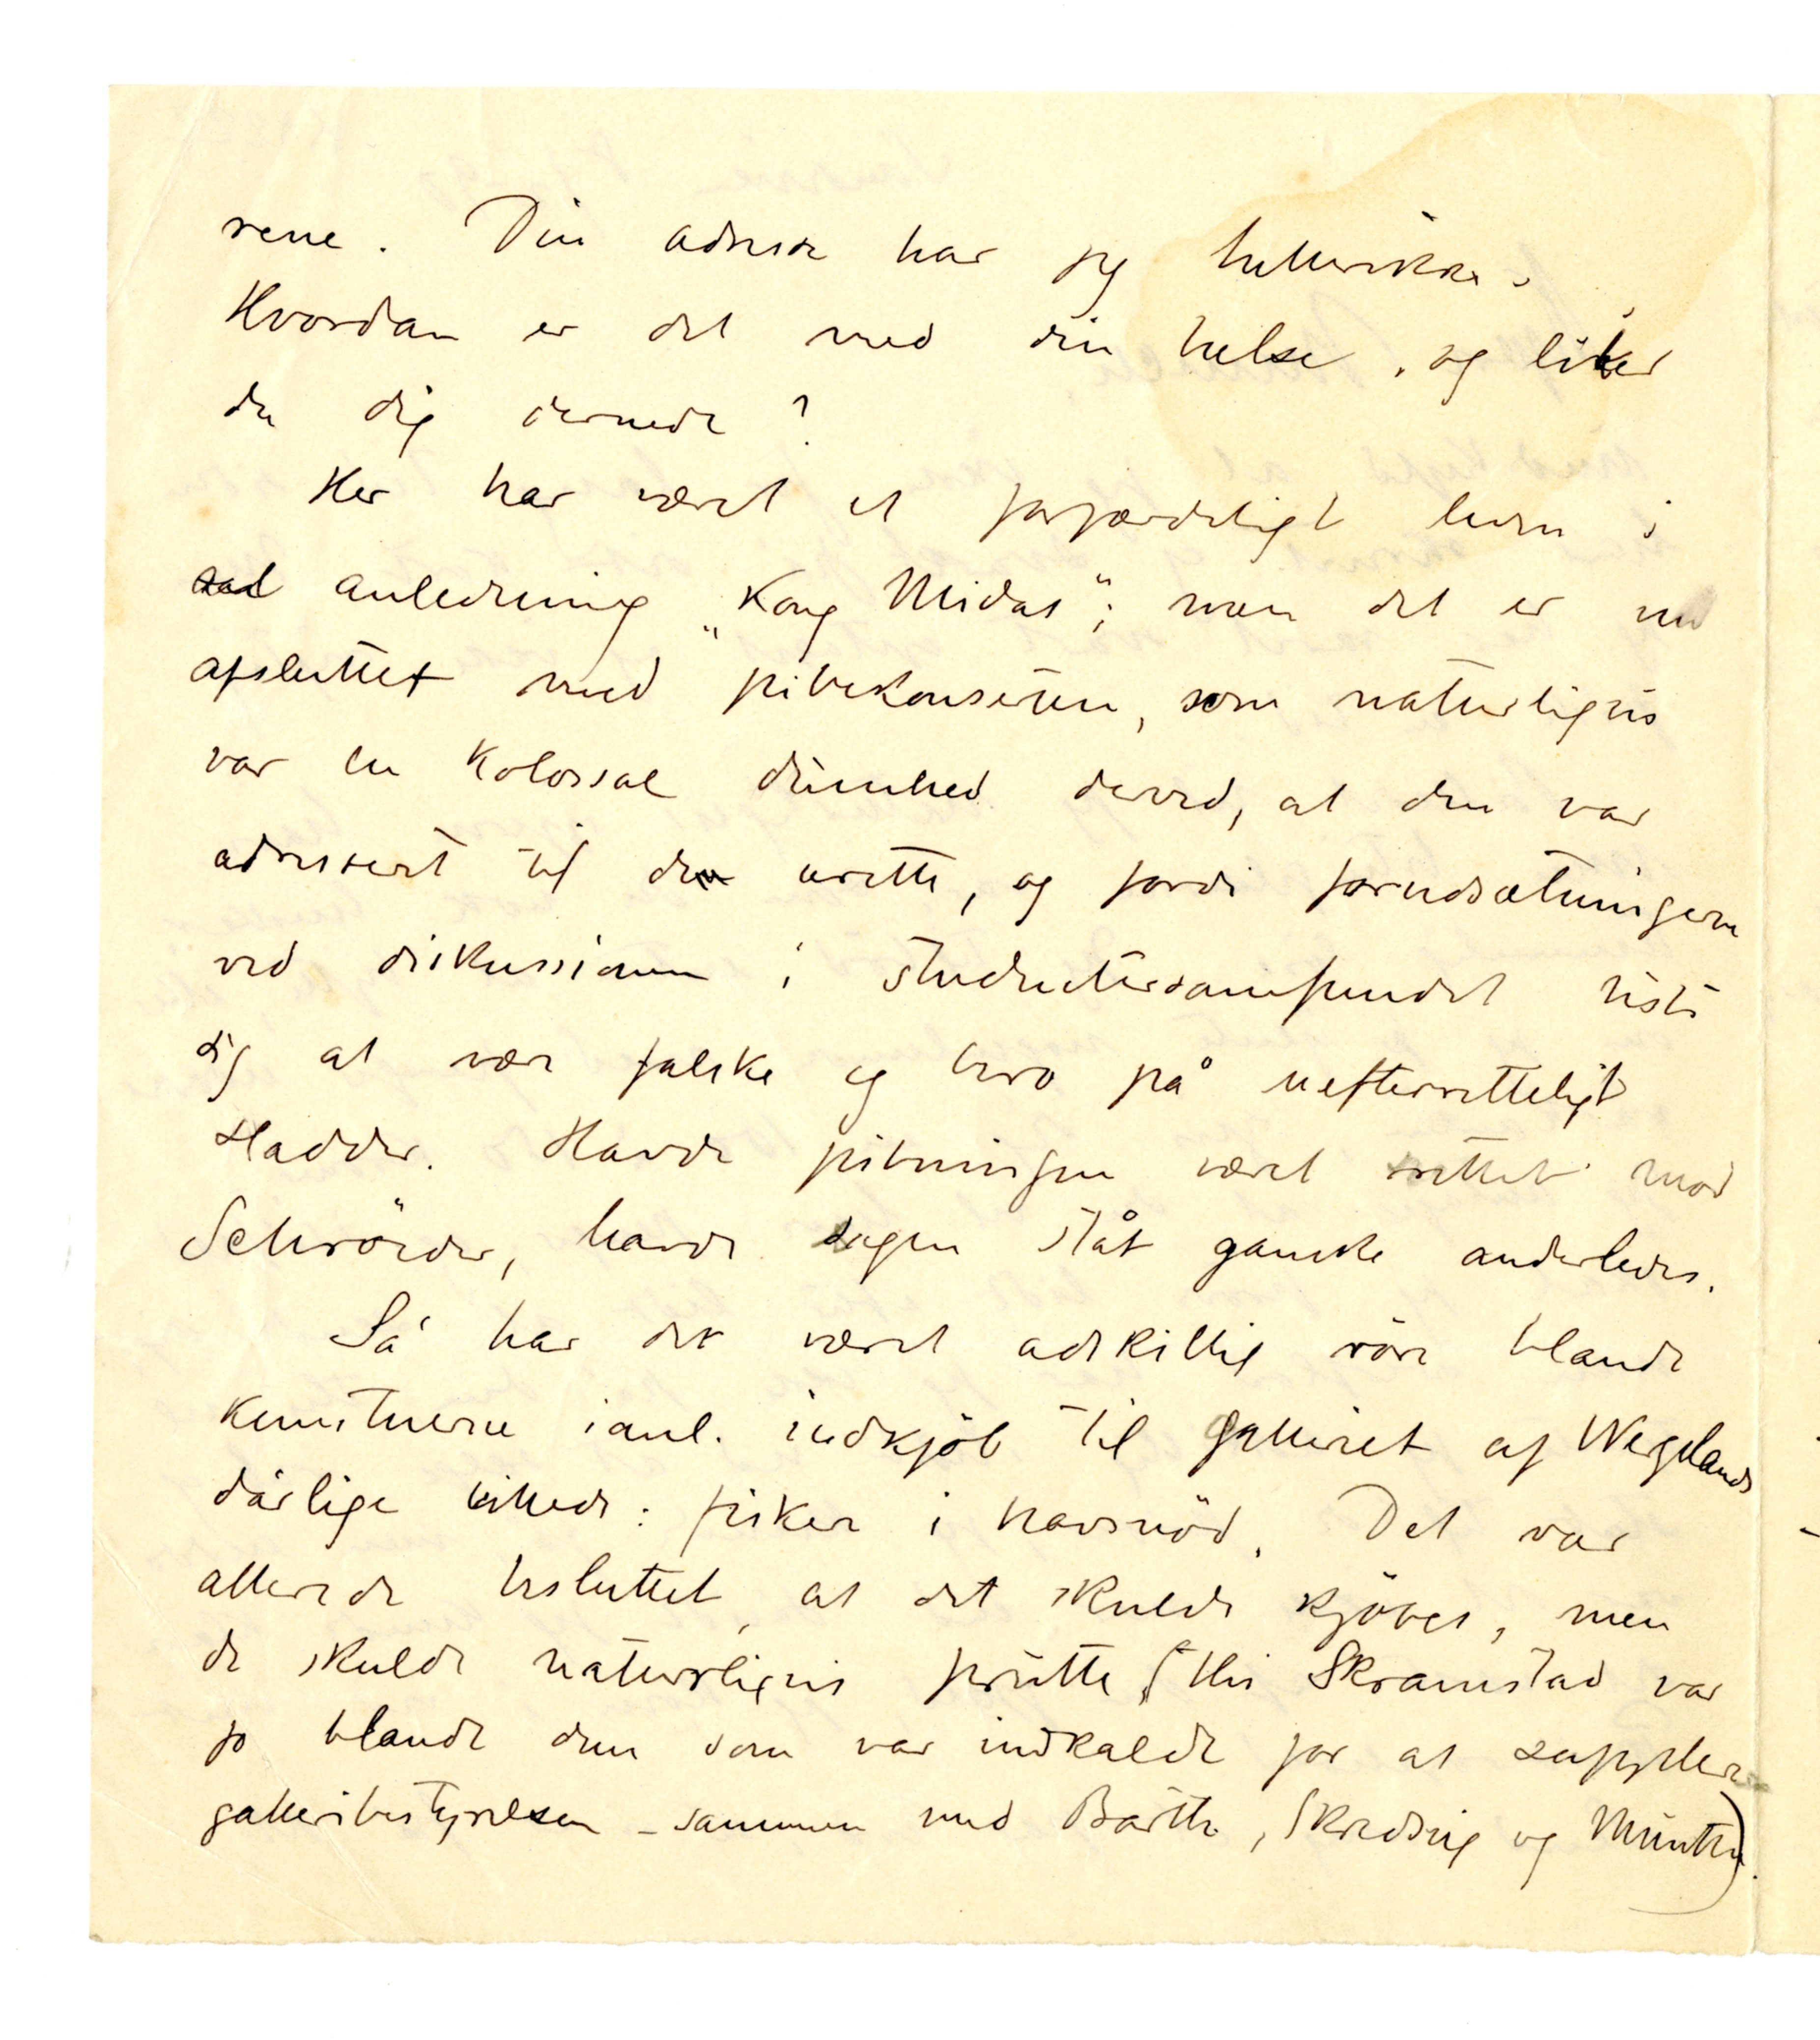 rene. Din adresse har jeg hellerikke.
Hvordan er det med din helse, og liker
du dig dernede?
Her har været et forfærdeligt leven i
anledning „Kong Midas“; men det er nu
afsluttet med pibekonserten, som naturligvis
var en kolossal dumhed derved, at den var
adressert til den urette, og fordi forudsætningerne
ved diskussionen i Studentersamfundet viste
sig at være falske og bero på uefterretteligt
sladder. Havde pibningen været rettet mod
Schrøder, havde sagen ståt ganske anderledes.
Så har det været adskillig røre blandt
kunstnerne i anl. indkjøb til galleriet af Wergelands
dårlige billede: fiskere i havsnød. Det var
allerede besluttet, at det skulde kjøbes, men
de skulde naturligvis prutte (His Skramstad var
jo blandt dem som var indkaldt for at supplere
galleribestyrelsen – sammen med Barth, Skredsvig og Munthe).